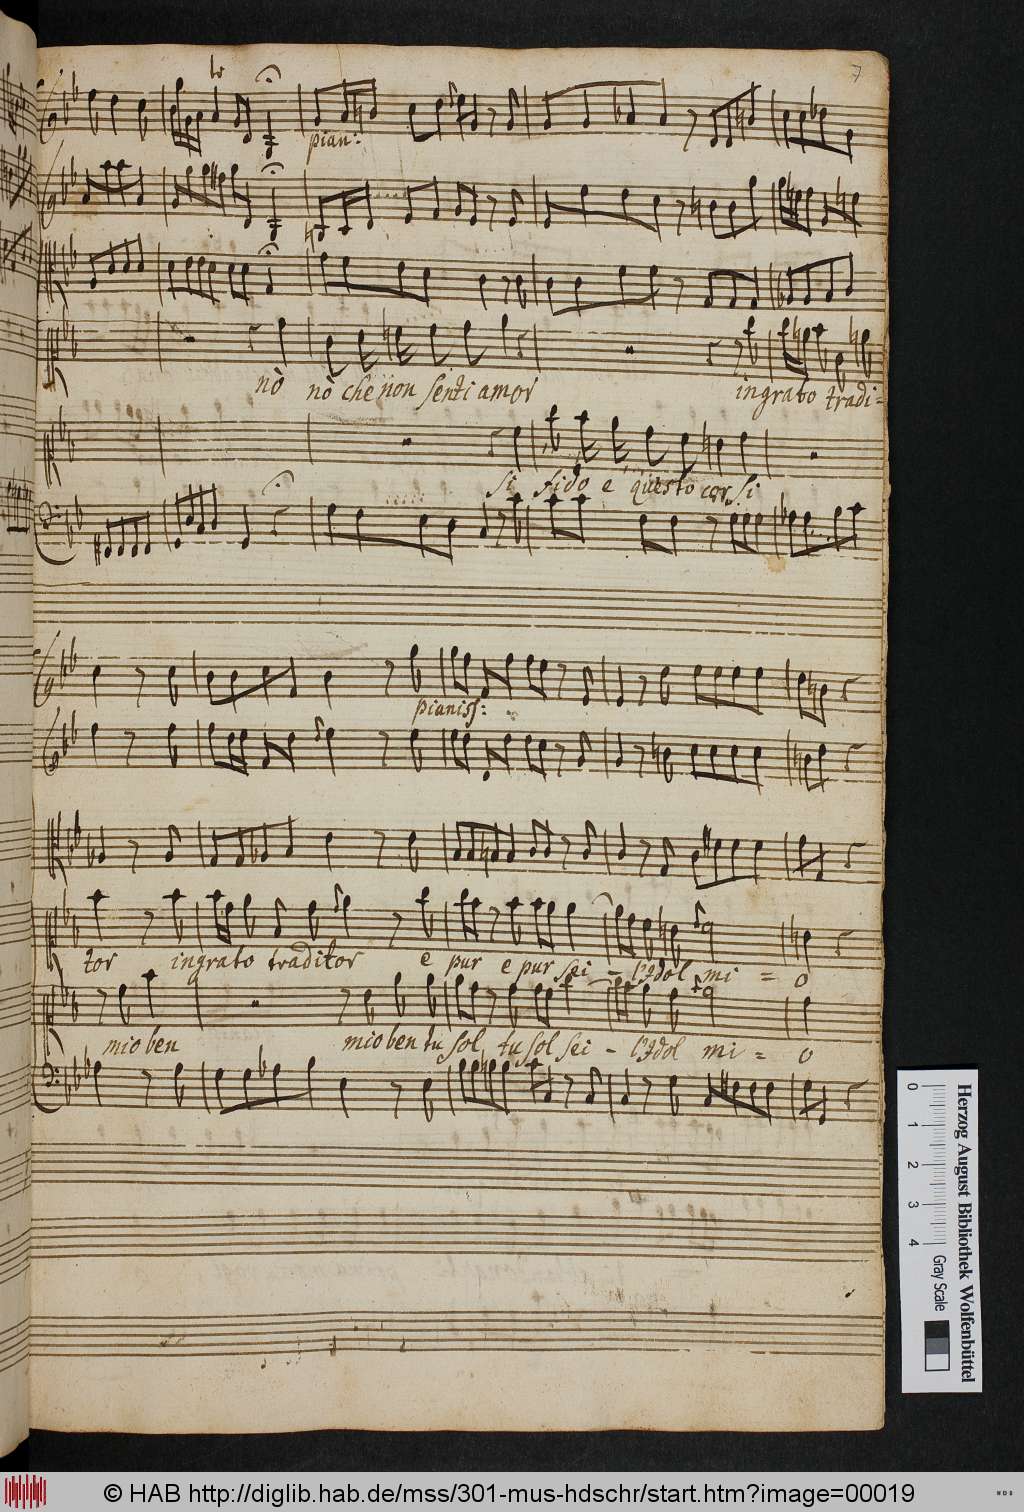 7
tr
pian:
nò nò che non senti amor ingrato tradi=
si fido e questo cor si
pianiss:
tor ingrato traditor e pur e pur sei - l'Idol mi = o
mio ben mio ben tu sol tu sol sei - l'Idol mi = o
0 1 2 3 4
Herzog August Bibliothek Wolfenbüttel
Gray Scale
© HAB http://diglib.hab.de/mss/301-mus-hdschr/start.htm?image=00019